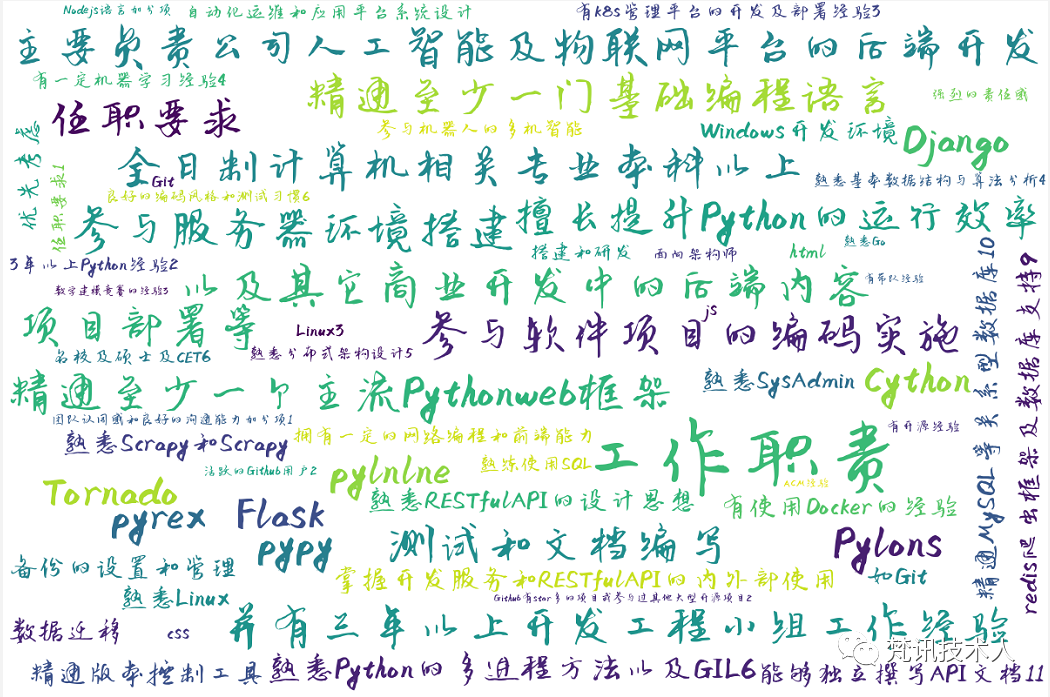 Nodejs语言加分项
自动化运维和应用平台系统设计
有k8s管理平台的开发及部署经验3
主要负责公司人工智能及物联网平台的后端开发
有一定机器学习经验4
精通至少一门基础编程语言
强烈的责任感
任职要求
参与机器人的多机智能
Windows开发环境
Django
优先考虑
任职要求1
全日制计算机相关专业本科以上
Git
熟悉基本数据结构与算法分析4
良好的编码风格和测试习惯6
参与服务器环境搭建
擅长提升Python的运行效率
搭建和研发
面向架构师
html
熟悉Go
3年以上Python经验2
数学建模竞赛的经验3
以及其它商业开发中的后端内容
有带队经验
项目部署等
Linux3
js
参与软件项目的编码实施
名校及硕士及CET6
熟悉分布式架构设计5
精通至少一个主流Pythonweb框架
熟悉SysAdmin
Cython
团队认同感和良好的沟通能力加分项1
熟悉Scrapy和Scrapy
拥有一定的网络编程和前端能力
工作职责
有开源经验
活跃的Github用户2
pylnlne
熟练使用SQL
ACM经验
Tornado
熟悉RESTfulAPI的设计思想
有使用Docker的经验
pyrex
Flask
pypy
测试和文档编写
Pylons
备份的设置和管理
掌握开发服务和RESTfulAPI的内外部使用
如Git
熟悉Linux
Github有star多的项目或参与过其他大型开源项目2
数据迁移
css
并有三年以上开发工程小组工作经验
精通MySQL等关系型数据库10
redis爬虫框架及数据库支持9
精通版本控制工具
熟悉Python的多进程方法以及GIL6
能够独立撰写API文档11
梵讯技术人